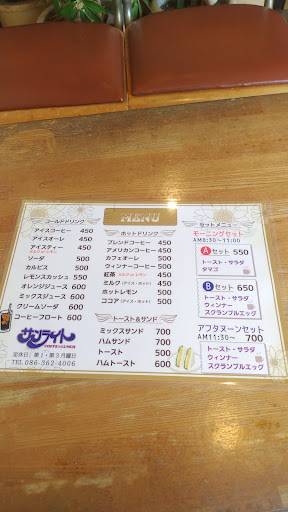 MENU
コールドドリンク
アイスコーヒー 450
アイスオーレ 450
アイスティー 450
ソーダ 500
カルピス 500
レモンスカッシュ 550
オレンジジュース 600
ミックスジュース 600
クリームソーダ 600
コーヒーフロート 600
サンライト
定休日:第1・第3月曜日
TEL 086-362-4006
ホットドリンク
ブレンドコーヒー 450
アメリカンコーヒー 450
カフェオーレ 500
ウィンナーコーヒー 500
紅茶 450
ミルク(アイス・ホット) 450
ホットレモン 500
ココア(アイス・ホット) 500
トースト&サンド
ミックスサンド 700
ハムサンド 700
トースト 500
ハムトースト 600
セットメニュー
モーニングセット
AM8:30~11:00
Aセット 550
トースト・サラダ
タマゴ
Bセット 650
トースト・サラダ
ウィンナー
スクランブルエッグ
アフタヌーンセット
AM11:30~ 700
トースト・サラダ
ウィンナー
スクランブルエッグ